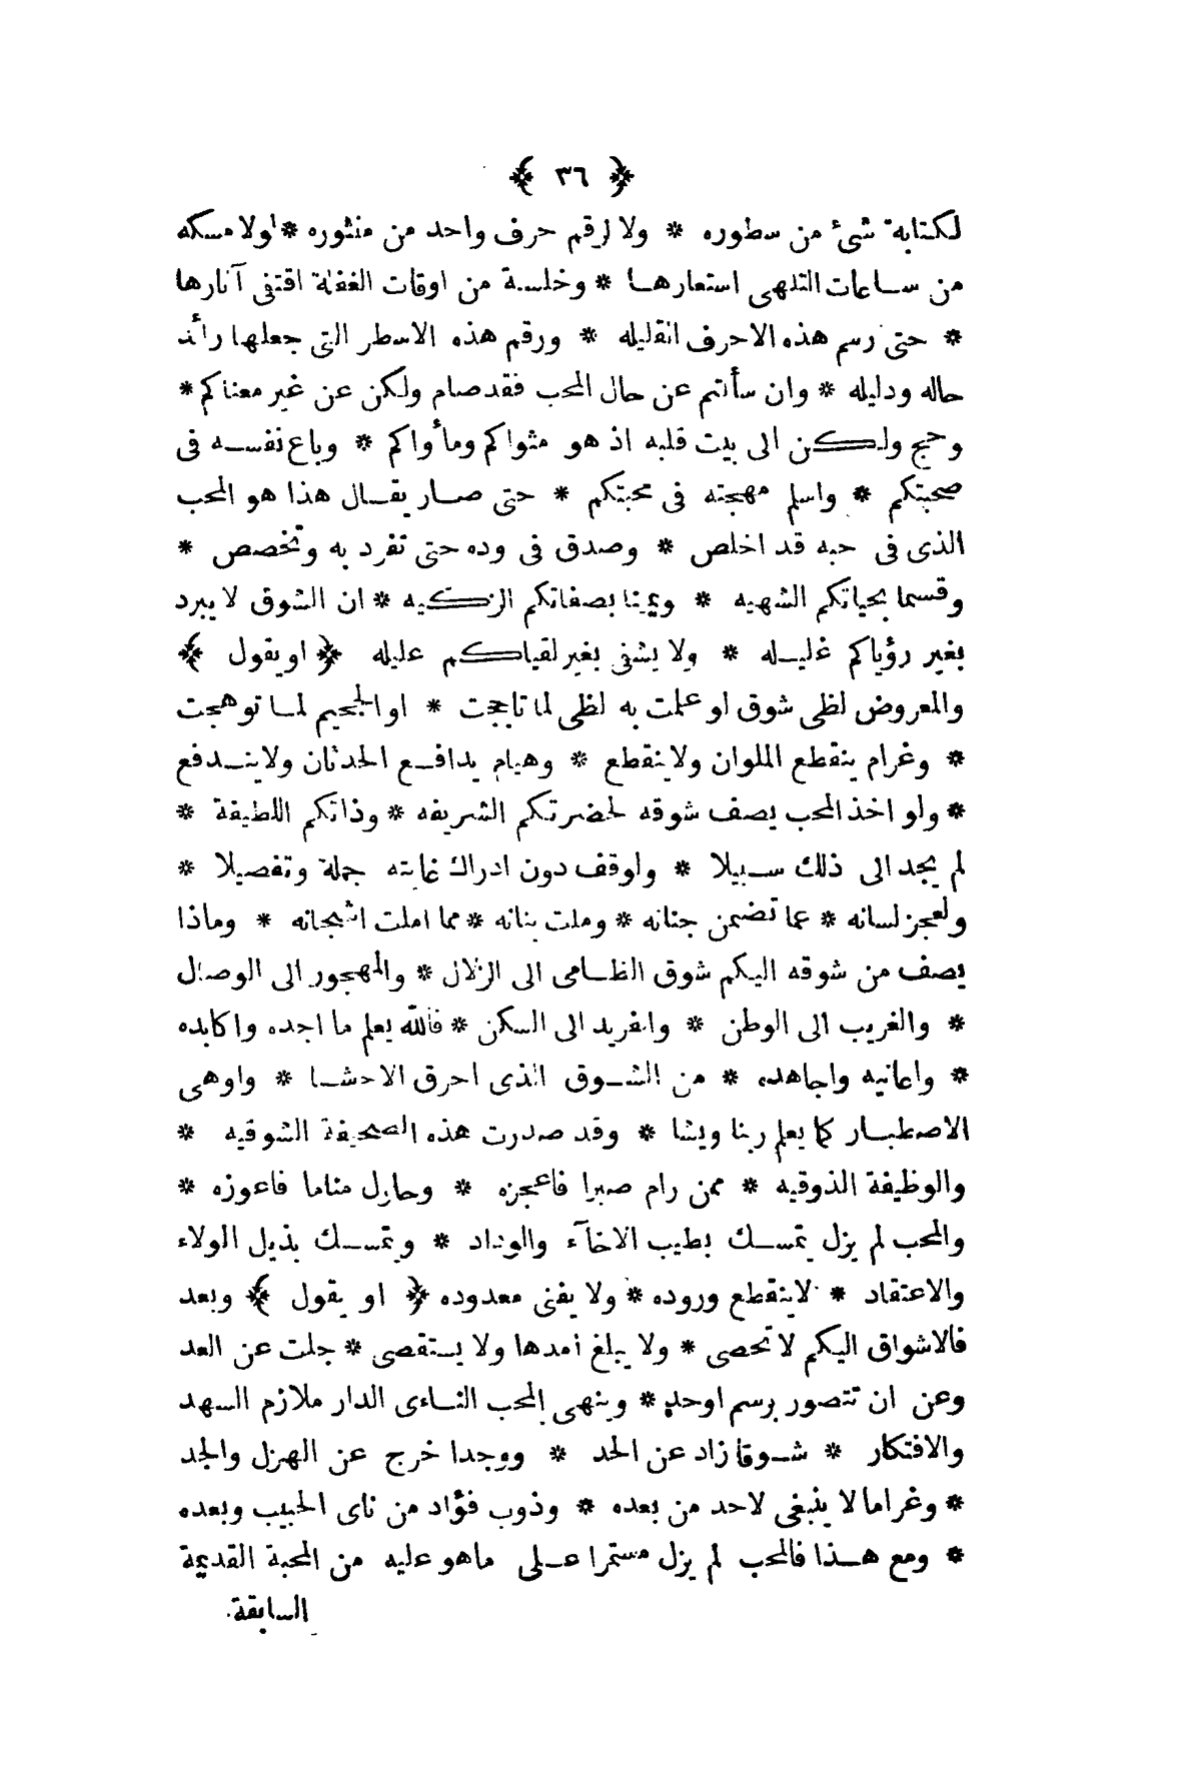 ﴿ ٣٦ ﴾
لكتابة شئ من سطوره * ولا لرقم حرف واحد من منثوره * ولا مسكه
من ساعات التلهى استعارها * وخلسة من اوقات الغفلة اقتفى آثارها
* حتى رسم هذه الاحرف القليله * ورقم هذه الاسطر التى جعلها رائد
حاله ودليله * وان سألتم عن حال المحب فقد صام ولكن عن غير معناكم *
وحج ولكن الى بيت قلبه اذ هو مثواكم ومأواكم * وباع نفسه فى
صحبتكم * واسلم مهجته فى محبتكم * حتى صار يقال هذا هو المحب
الذى فى حبه قد اخلص * وصدق فى وده حتى تفرد به وتخصص *
وقسما بحياتكم الشهيه * ويمينا بصفاتكم الزكيه * ان الشوق لا يبرد
بغير رؤياكم غليله * ولا يشفى بغير لقياكم عليله ﴿ او يقول ﴾
والمعروض لظى شوق لو علمت به لظى لما تاججت * او الجحيم لما توهجت
* وغرام ينقطع الملوان ولا ينقطع * وهيام يدافع الحدثان ولا يندفع
* ولو اخذ المحب يصف شوقه لحضرتكم الشريفه * وذاتكم اللطيفة *
لم يجد الى ذلك سبيلا * ولوقف دون ادراك غايته جملة وتفصيلا *
ولعجز لسانه * عما تضمن جنانه * وملت بنانه * مما املت اشجانه * وماذا
يصف من شوقه اليكم شوق الظامى الى الزلال * والمهجور الى الوصال
* والغريب الى الوطن * والفريد الى السكن * فالله يعلم ما اجده واكابده
* واعانيه واجاهده * من الشوق الذى احرق الاحشا * واوهى
الاصطبار كما يعلم ربنا ويشا * وقد صدرت هذه الصحيفة الشوقيه *
والوظيفة الذوقيه * ممن رام صبرا فاعجزه * وحاول مناما فاعوزه *
والمحب لم يزل يتمسك بطيب الاخآء والوداد * ويتمسك بذيل الولاء
والاعتقاد * لا ينقطع وروده * ولا يفنى معدوده ﴿ او يقول ﴾ وبعد
فالاشواق اليكم لا تحصى * ولا يبلغ أمدها ولا يستقصى * جلت عن العد
وعن ان تتصور برسم اوحد * وينهى المحب الناءى الدار ملازم السهد
والافتكار * شوقا زاد عن الحد * ووجدا خرج عن الهزل والجد
* وغراما لا ينبغى لاحد من بعده * وذوب فؤاد من ناى الحبيب وبعده
* ومع هذا فالمحب لم يزل مستمرا على ماهو عليه من المحبة القديمة
السابقة